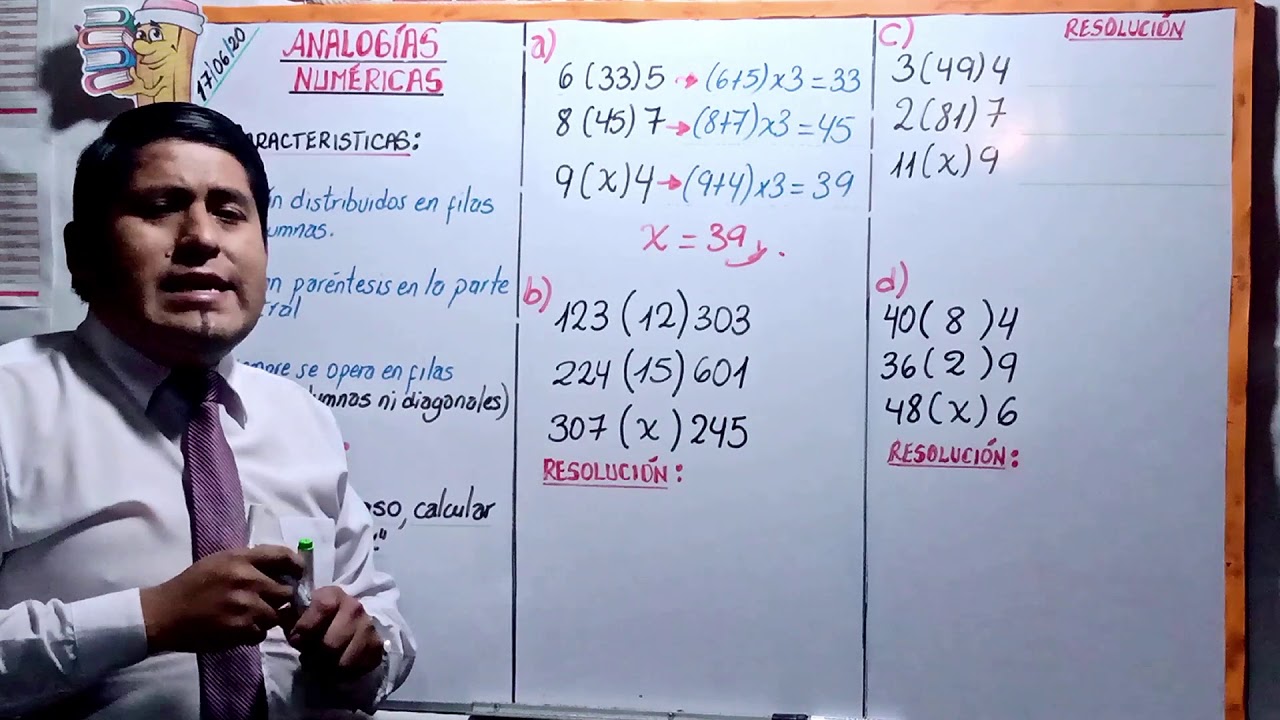 17/06/20
ANALOGÍAS
NUMÉRICAS
CARACTERISTICAS:
distribuidos en filas
paréntesis en la parte
se opera en filas
ni diagonales)
calcular
a)
6 (33) 5 → (6+5)x3 = 33
8 (45) 7 → (8+7)x3 = 45
9 (x) 4 → (9+4)x3 = 39
x = 39
b)
123 (12) 303
224 (15) 601
307 (x) 245
RESOLUCIÓN:
c)
RESOLUCIÓN
3 (49) 4
2 (81) 7
11 (x) 9
d)
40 ( 8 ) 4
36 ( 2 ) 9
48 (x) 6
RESOLUCIÓN: